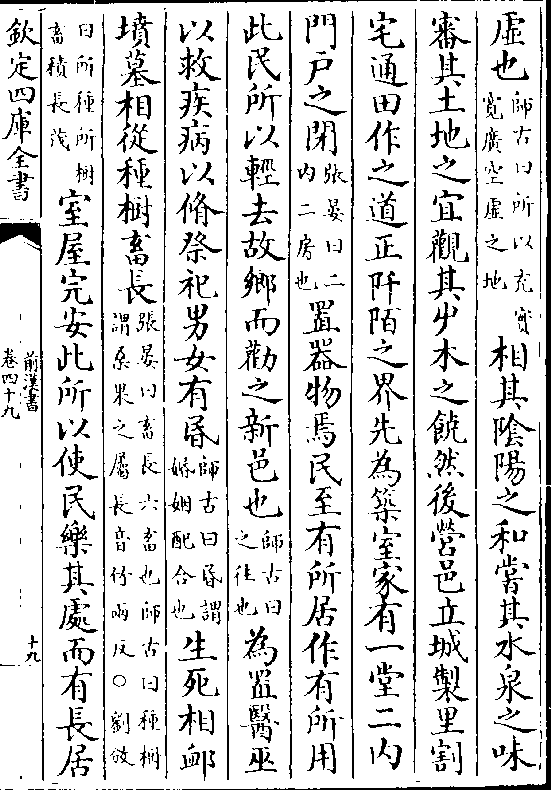 虛也師古曰所以充實寛廣空虛之地相其陰陽之和嘗其水泉之味
審其土地之宜觀其屮木之饒然後營邑立城製里割
宅通田作之道正阡陌之界先為築室家有一堂二内
門戶之閉張晏曰二内二房也置器物焉民至有所居作有所用
此民所以輕去故鄉而勸之新邑也師古曰之往也為置醫巫
以救疾病以脩祭祀男女有昏師古曰昏謂婚姻配合也生死相䘏
墳墓相從種樹畜長張晏曰畜長六畜也師古曰種樹謂桑果之屬長音竹兩反○劉攽
曰所種所樹畜積長茂室屋完安此所以使民樂其處而有長居
欽定四庫全書
前漢書
卷四十九
十九